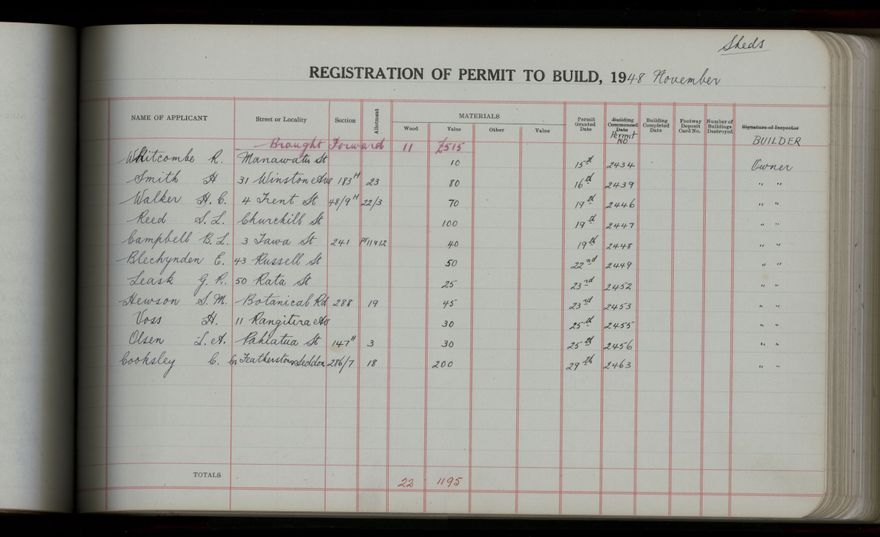 Sheds
REGISTRATION OF PERMIT TO BUILD, 1948 November
NAME OF APPLICANT Street or Locality Section Allotment MATERIALS Wood Value Other Value Permit Granted Date Building Commenced Date Permit No Building Completed Date Footway Deposit Card No. Number of Buildings Destroyed Signature of Inspector BUILDER
Brought Forward 11 £515
Whitcombe R. Manawatu St 10 15th 2434 Owner
Smith H 31 Winston Ave 183H 23 80 16th 2439 " "
Walker H. C. 4 Trent St 48/9H 22/3 70 19th 2446 " "
Reed S. L. Churchill St 100 19th 2447 " "
Campbell B. L. 3 Tawa St 241 Pt 11 & 12 40 19th 2448 " "
Blechynden E. 43 Russell St 50 22nd 2449 " "
Leask G. R. 50 Rata St 25 23rd 2452 " "
Hewson S. M. Botanical Rd 288 19 45 23rd 2453 " "
Voss H. 11 Rangitira Av 30 25th 2455 " "
Olsen L. A. Pahiatua St 147H 3 30 25th 2456 " "
Cooksley C. Cn Featherston Seddon 286/7 18 200 29th 2463 " "
TOTALS 22 1195